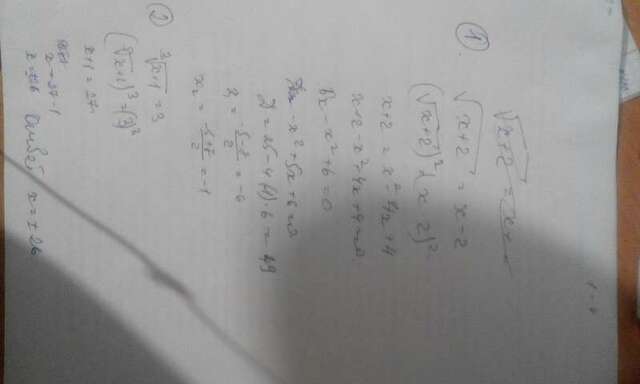 ①
√x+2 = x
√x+2 = x-2
(√x+2)² = (x-2)²
x+2 = x²-4x+4
x+2-x²+4x+4=0
5x-x²+6=0
-x²+5x+6=0
D=25-4·(-1)·6=49
x₁ = -5-7/2 = -6
x₂ = -5+7/2 = -1
②
³√x+1 = 3
(³√x+1)³ = (3)³
x+1=27
x=27-1
x=±26 Ответ x=±26